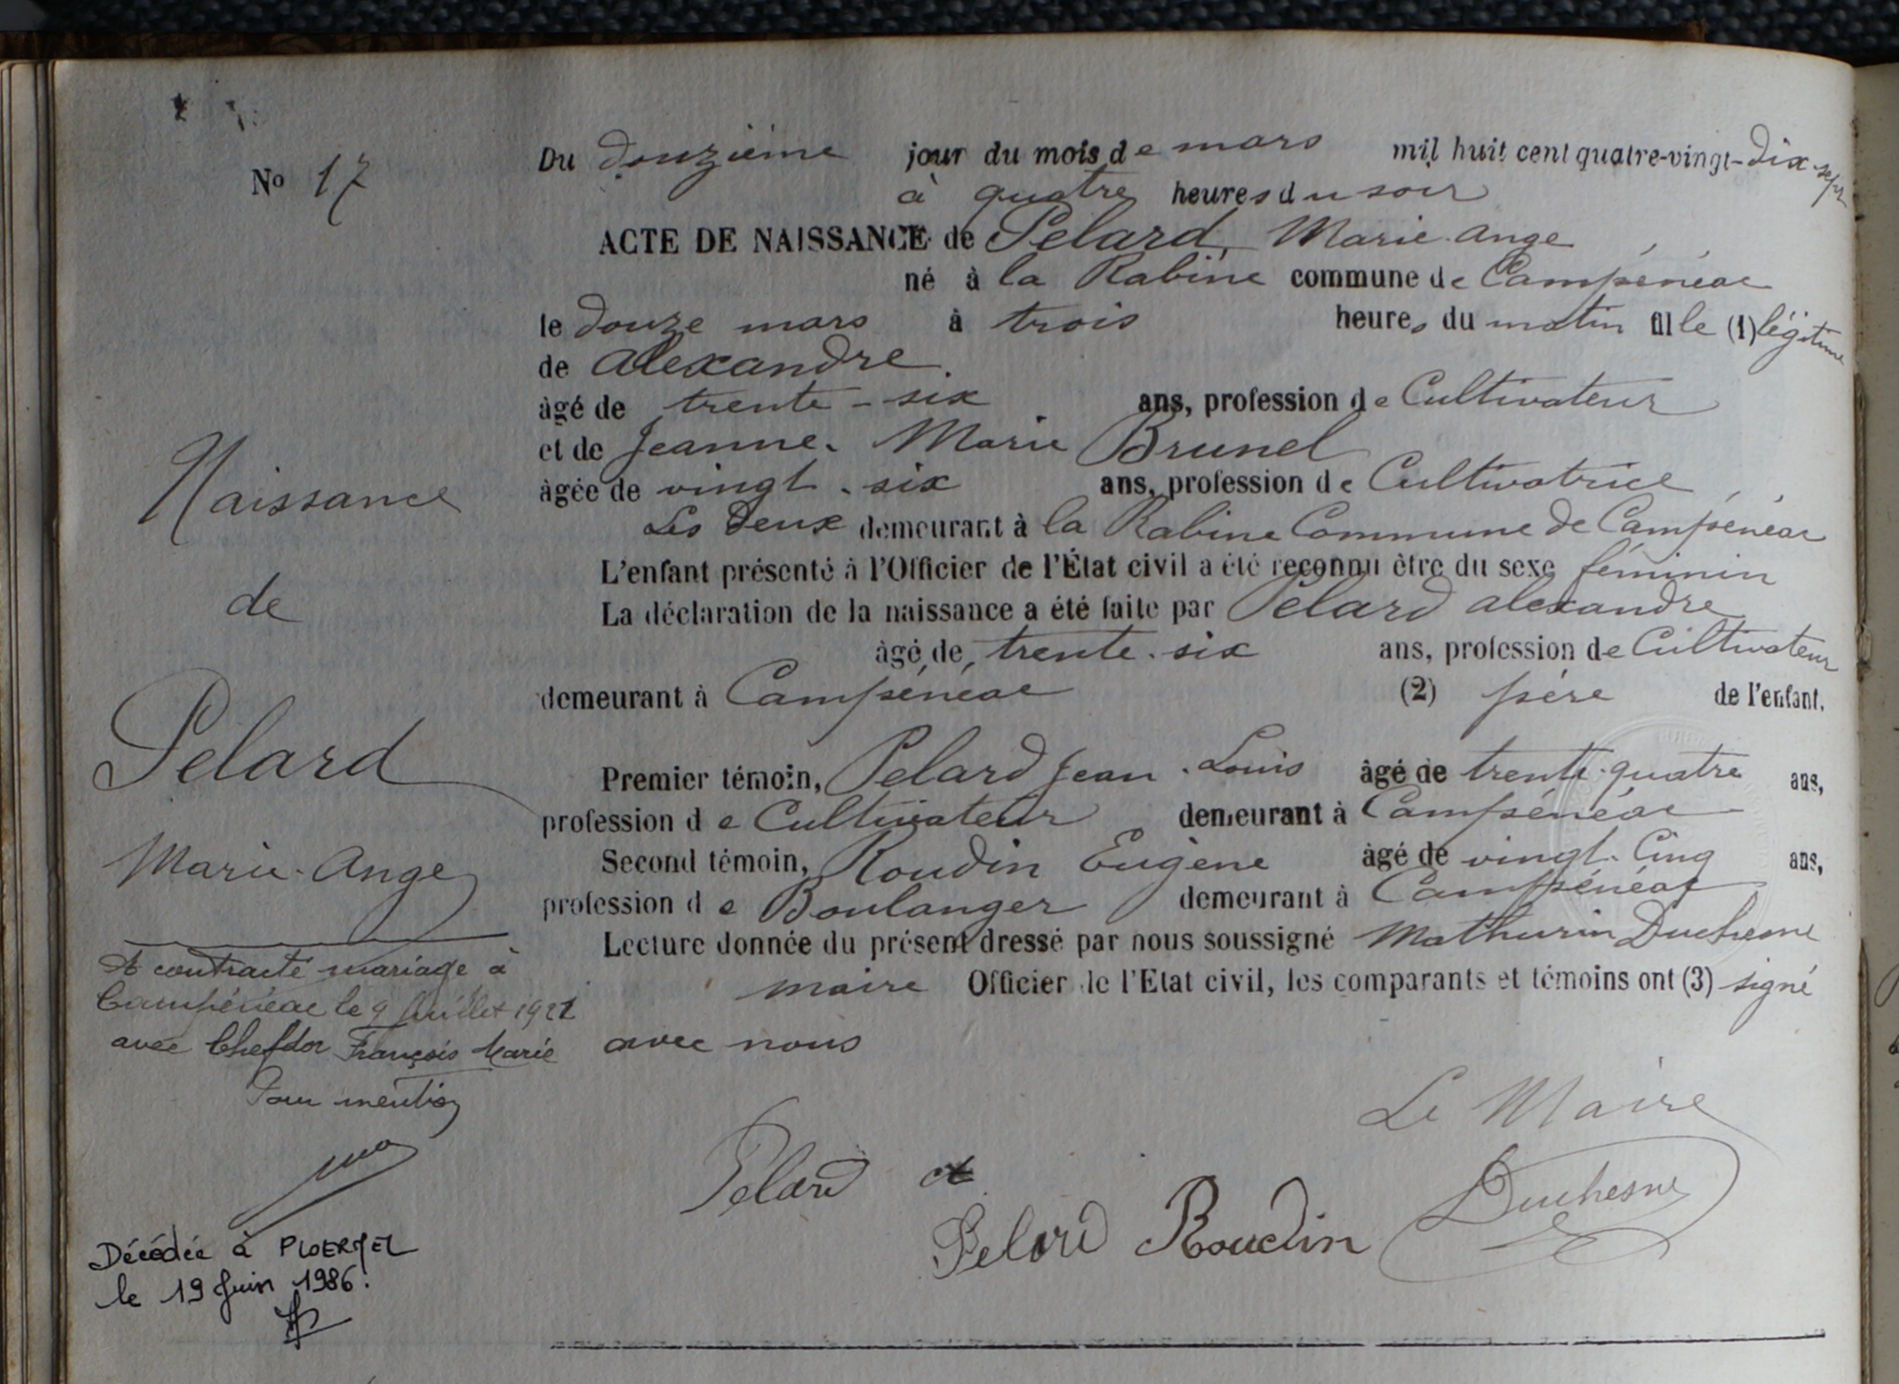 No 17
Du douzième jour du mois de mars mil huit cent quatre-vingt-dix-sept
à quatre heures du soir
ACTE DE NAISSANCE de Pelard, Marie-Ange
né à la Rabine commune de Campénéac
le douze mars à trois heures du matin fille (1) légitime
de Alexandre.
âgé de trente-six ans, profession de Cultivateur
et de Jeanne-Marie Brunel
âgée de vingt-six ans, profession de Cultivatrice
Les deux demeurant à la Rabine Commune de Campénéac
L'enfant présenté à l'Officier de l'État civil a été reconnu être du sexe féminin
La déclaration de la naissance a été faite par Pelard Alexandre
âgé de trente-six ans, profession de Cultivateur
demeurant à Campénéac (2) père de l'enfant.
Premier témoin, Pelard Jean-Louis âgé de trente-quatre ans,
profession de Cultivateur demeurant à Campénéac
Second témoin, Roudin Eugène âgé de vingt-Cinq ans,
profession de Boulanger demeurant à Campénéac
Lecture donnée du présent dressé par nous soussigné Mathurin Duchesne
maire Officier de l'Etat civil, les comparants et témoins ont (3) signé
avec nous
Le Maire
Pelard
Pelard Roudin Duchesne
Naissance
de
Pelard
Marie-Ange
A contracté mariage à
Campénéac le 9 Juillet 1921
avec Chefdor François Marie
Pour mention
Décédée à PLOERMEL
le 19 Juin 1986.